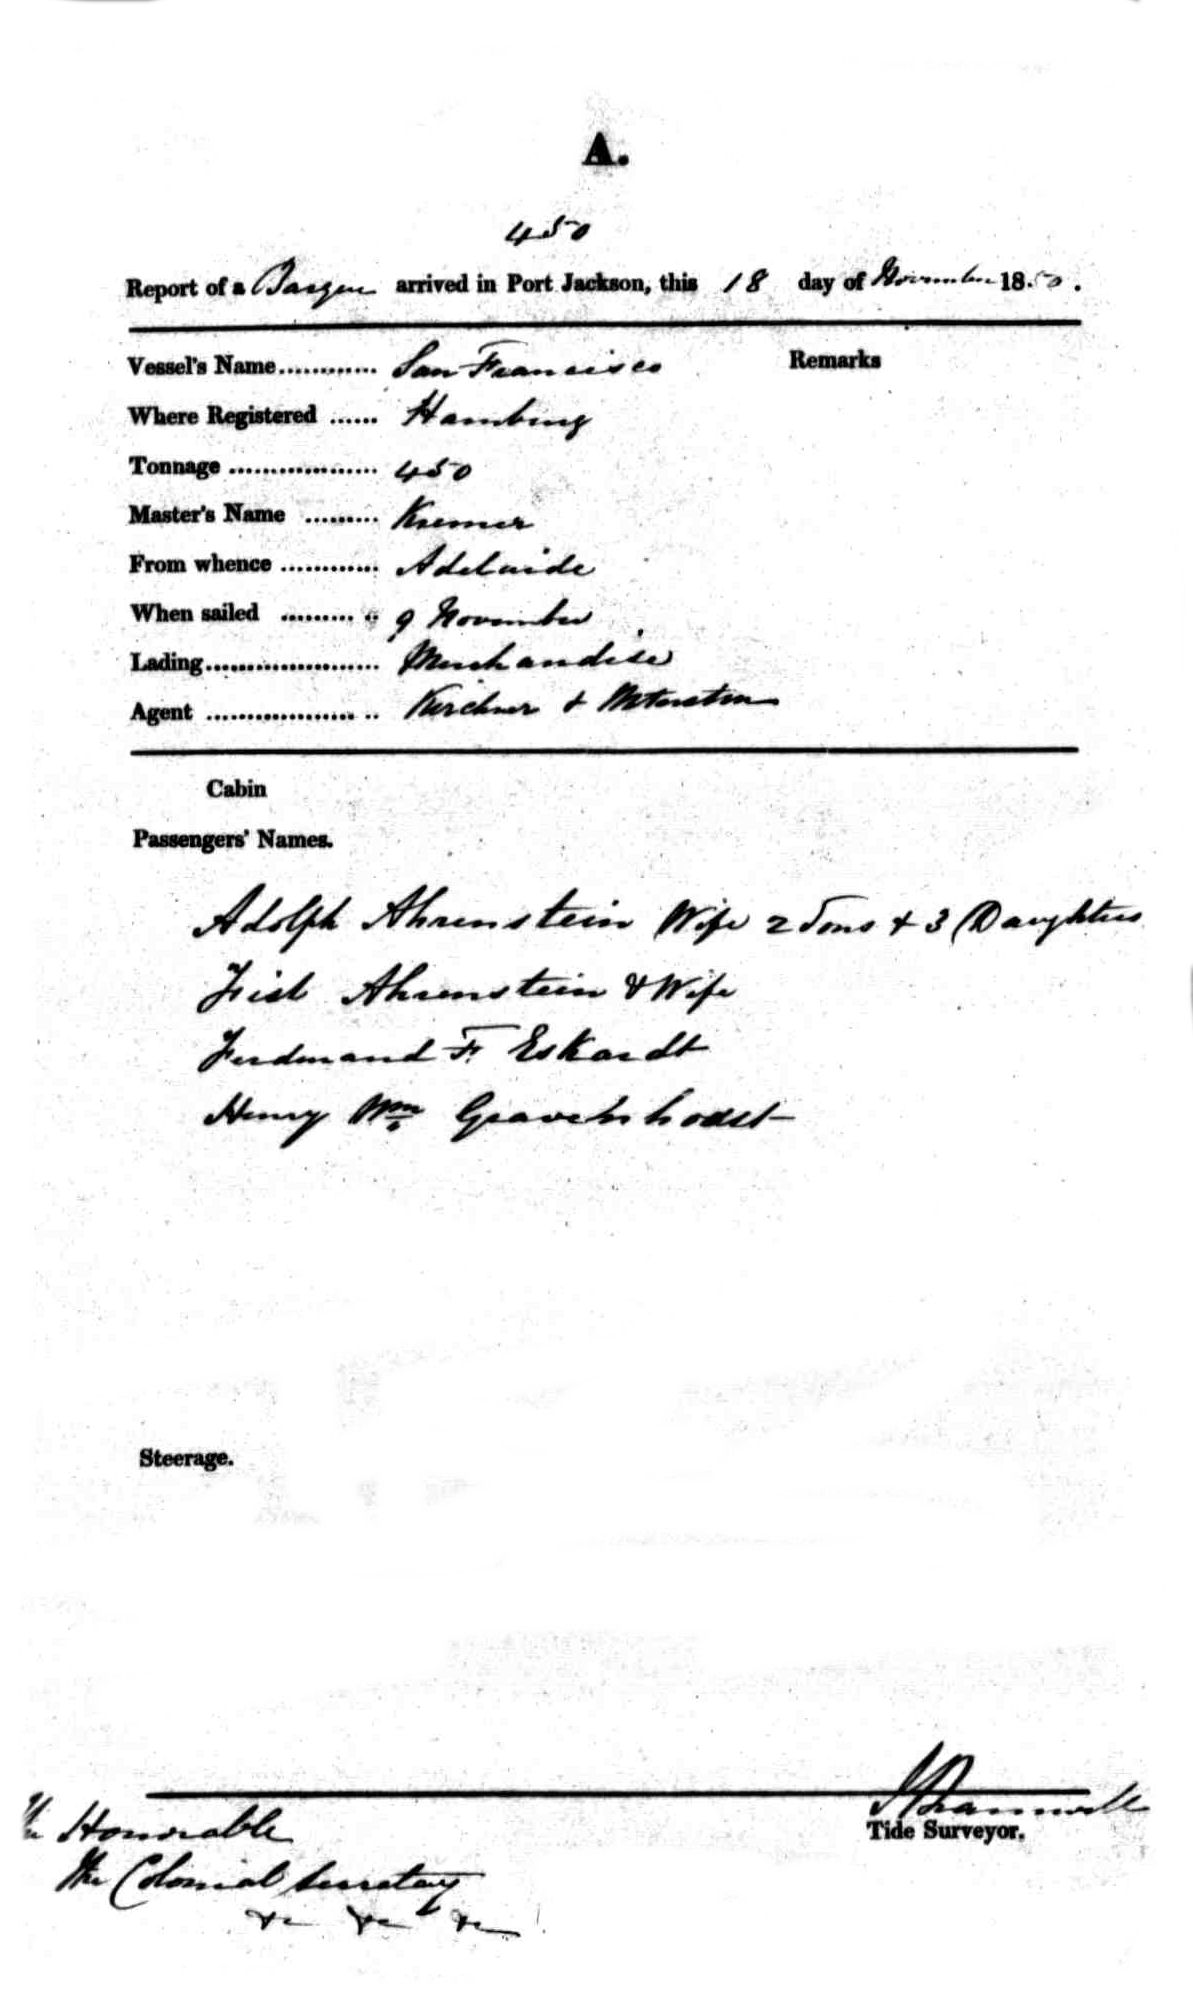 A.
450
Report of a Barque arrived in Port Jackson, this 18 day of November 1850.
Vessel's Name............ San Francisco Remarks
Where Registered ...... Hamburg
Tonnage .................. 450
Master's Name ......... Kremer
From whence ............ Adelaide
When sailed ......... 9 November
Lading..................... Merchandise
Agent .................... Kirchner &
Cabin
Passengers' Names.
Adolph Ahrenstein Wife 2 Sons & 3 Daughters
Ahrenstein & Wife
Ferdinand F. Eskardt
Henry Wm Gravenhorst
Steerage.
Tide Surveyor.
The Honorable
The Colonial Secretary
&c &c &c